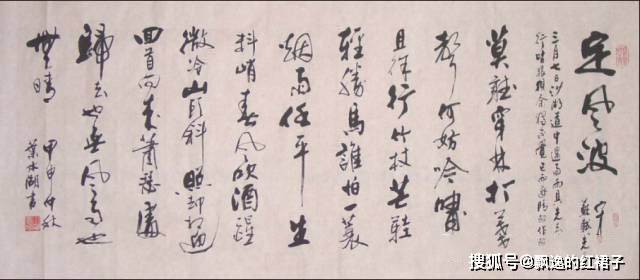 定风波
宋
蘇軾
三月七日沙湖道中遇雨雨具先去
行皆狼狽余獨不覺已而遂晴故作
莫聽穿林打葉
聲何妨吟嘯
且徐行竹杖芒鞋
輕勝馬誰怕一蓑
烟雨任平生
料峭春风吹酒醒
微冷山頭斜照却相迎
回首向来蕭瑟處
歸去也無风雨也
無晴
甲申仲秋
葉水湖書
搜狐号@飘逸的红裙子